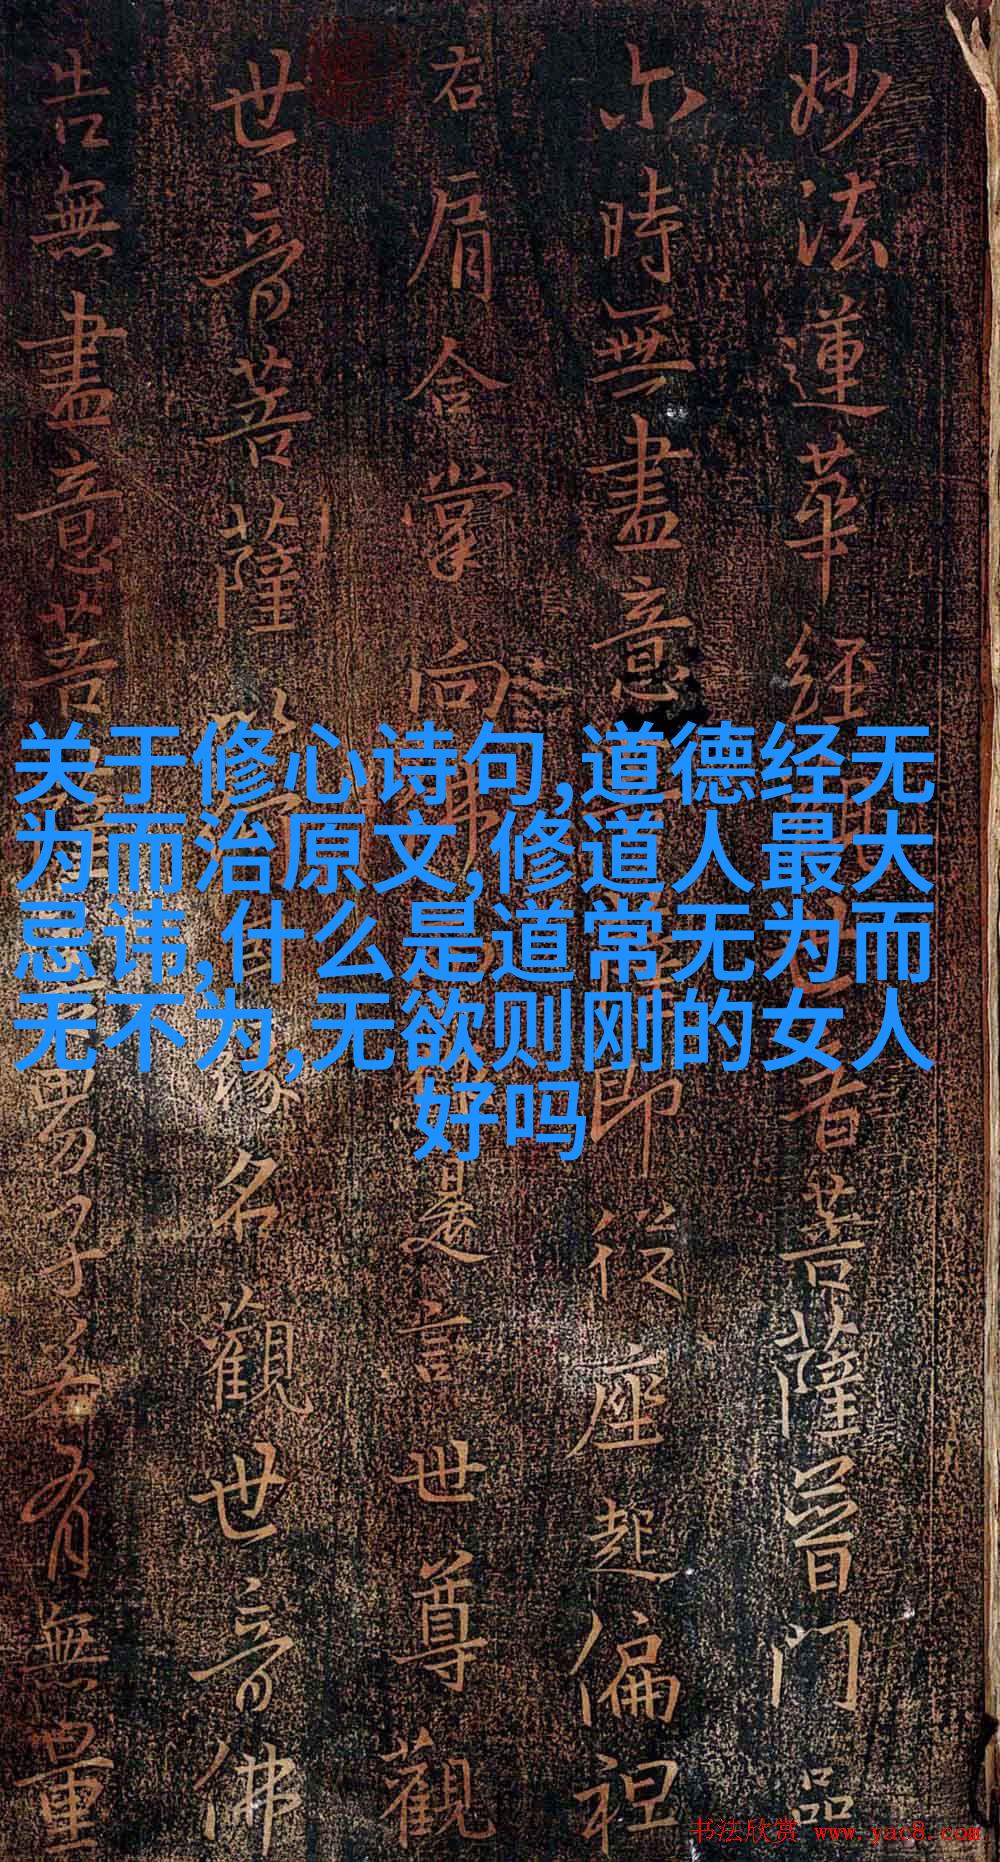 妙法蓮華經世音菩薩普門品
尒時無盡意薩即從座起偏袒
右肩合掌向佛是言世尊觀
世音菩薩以何因緣名觀世音佛
告無盡意菩薩男子若有無量
关于修心诗句,道德经无
为而治原文,修道人最大
忌讳,什么是道常无为而
无不为,无欲则刚的女人
好吗
书法欣赏 www.yac8.com